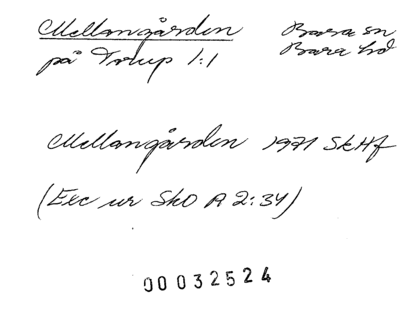 Mellangården Bara sn
på Torup 1:1 Bara hd
Mellangården 1971 SkHf
(Exc ur SkO A 2:34)
00032524